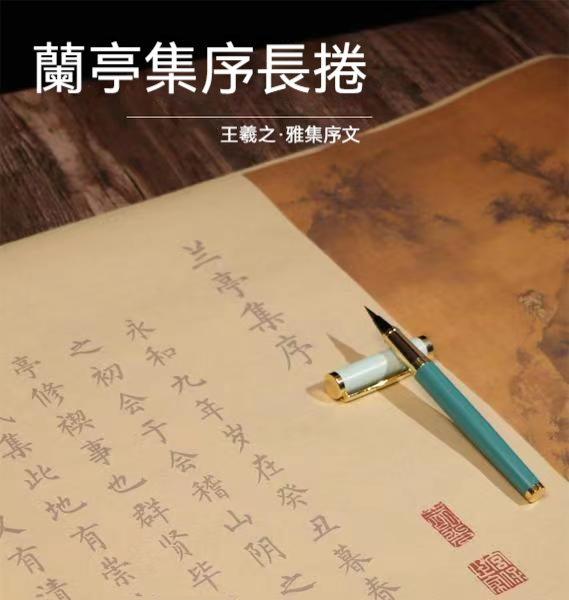 蘭亭集序長捲
王羲之·雅集序文
兰亭集序
永和九年岁在癸丑暮春
之初会于会稽山阴之
亭修禊事也群贤毕
集此地有崇
又有清